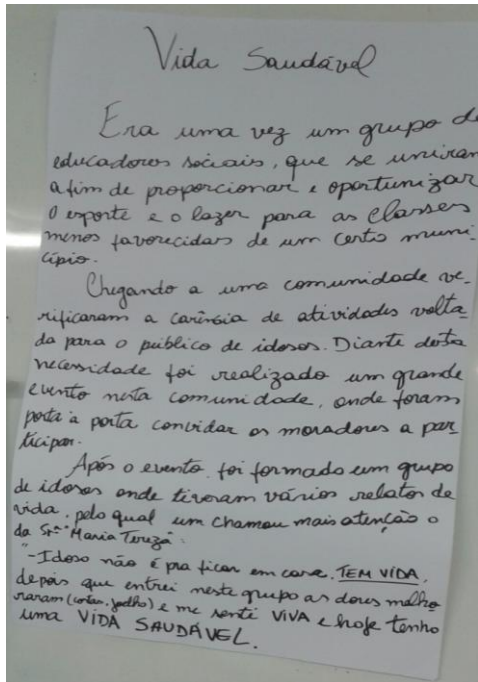 Vida Saudável
Era uma vez um grupo de
educadores sociais, que se uniram
afim de proporcionar e oportunizar
o esporte e o lazer para as classes
menos favorecidas de um certo muni-
cípio.
Chegando a uma comunidade ve-
rificaram a carência de atividades volta-
da para o público de idosos. Diante desta
necessidade foi realizado um grande
evento nesta comunidade, onde foram
porta a porta convidar os moradores a par-
ticipar.
Após o evento foi formado um grupo
de idosos onde tiveram vários relatos de
vida, pelo qual um chamou mais atenção o
da Srª Maria Tereza:
"-Idoso não é pra ficar em casa, TEM VIDA,
depois que entrei neste grupo as dores melho
raram (costas, joelho) e me senti VIVA e hoje tenho
uma VIDA SAUDÁVEL.